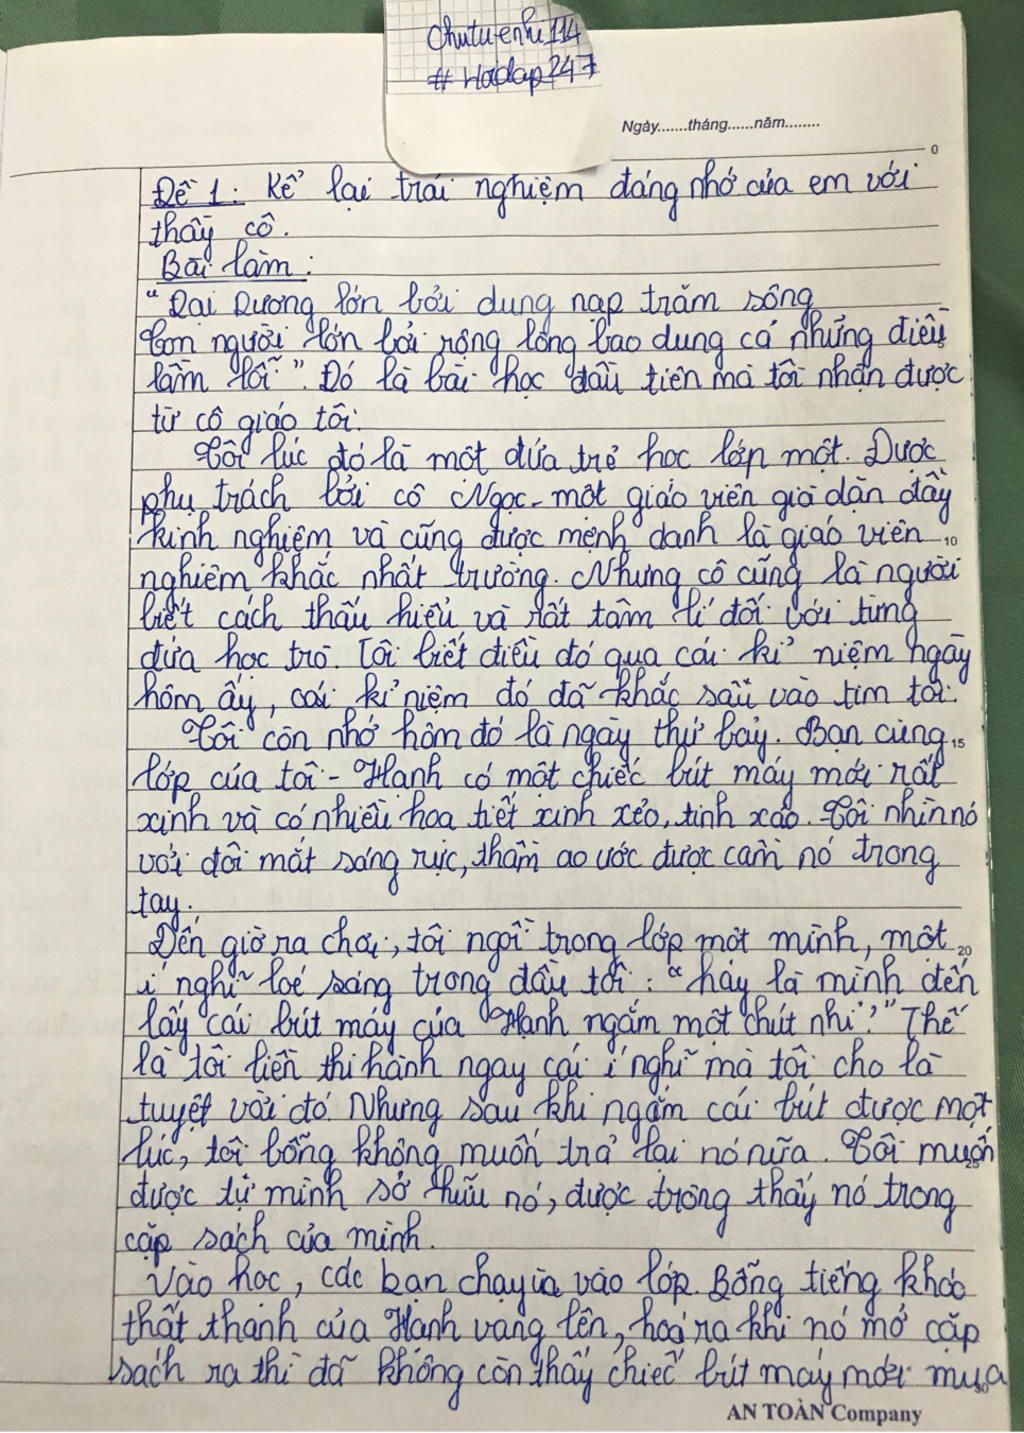 chutuenhi114
# Hoidap247
Ngày.......tháng......năm........
0
Đề 1: Kể lại trải nghiệm đáng nhớ của em với
thầy cô.
Bài làm:
"Đại Dương lớn bởi dung nạp trăm sông
Con người lớn bởi rộng lòng bao dung cả những điều
lầm lỗi". Đó là bài học đầu tiên mà tôi nhận được
từ cô giáo tôi.
Tôi lúc đó là một đứa trẻ học lớp một. Được
phụ trách bởi cô Ngọc - một giáo viên già dặn đầy
kinh nghiệm và cũng được mệnh danh là giáo viên 10
nghiêm khắc nhất trường. Nhưng cô cũng là người
biết cách thấu hiểu và rất tâm lí đối với từng
đứa học trò. Tôi biết điều đó qua cái kỉ niệm ngày
hôm ấy, cái kỉ niệm đó đã khắc sâu vào tim tôi.
Tôi còn nhớ hôm đó là ngày thứ bảy. Bạn cùng 15
lớp của tôi - Hạnh có một chiếc bút máy mới rất
xinh và có nhiều hoa tiết xinh xẻo, tinh xảo. Tôi nhìn nó
với đôi mắt sáng rực, thầm ao ước được cầm nó trong
tay.
Đến giờ ra chơi, tôi ngồi trong lớp một mình, một 20
í nghĩ loé sáng trong đầu tôi: "hay là mình đến
lấy cái bút máy của Hạnh ngắm một chút nhỉ?" Thế
là tôi liền thi hành ngay cái í nghĩ mà tôi cho là
tuyệt vời đó. Nhưng sau khi ngắm cái bút được một
lúc, tôi bỗng không muốn trả lại nó nữa. Tôi muốn 25
được tự mình sở hữu nó, được trông thấy nó trong
cặp sách của mình.
Vào học, các bạn chạy ùa vào lớp. Bỗng tiếng khóc
thất thanh của Hạnh vang lên, hoá ra khi nó mở cặp
sách ra thì đã không còn thấy chiếc bút máy mới mua 30
AN TOÀN Company